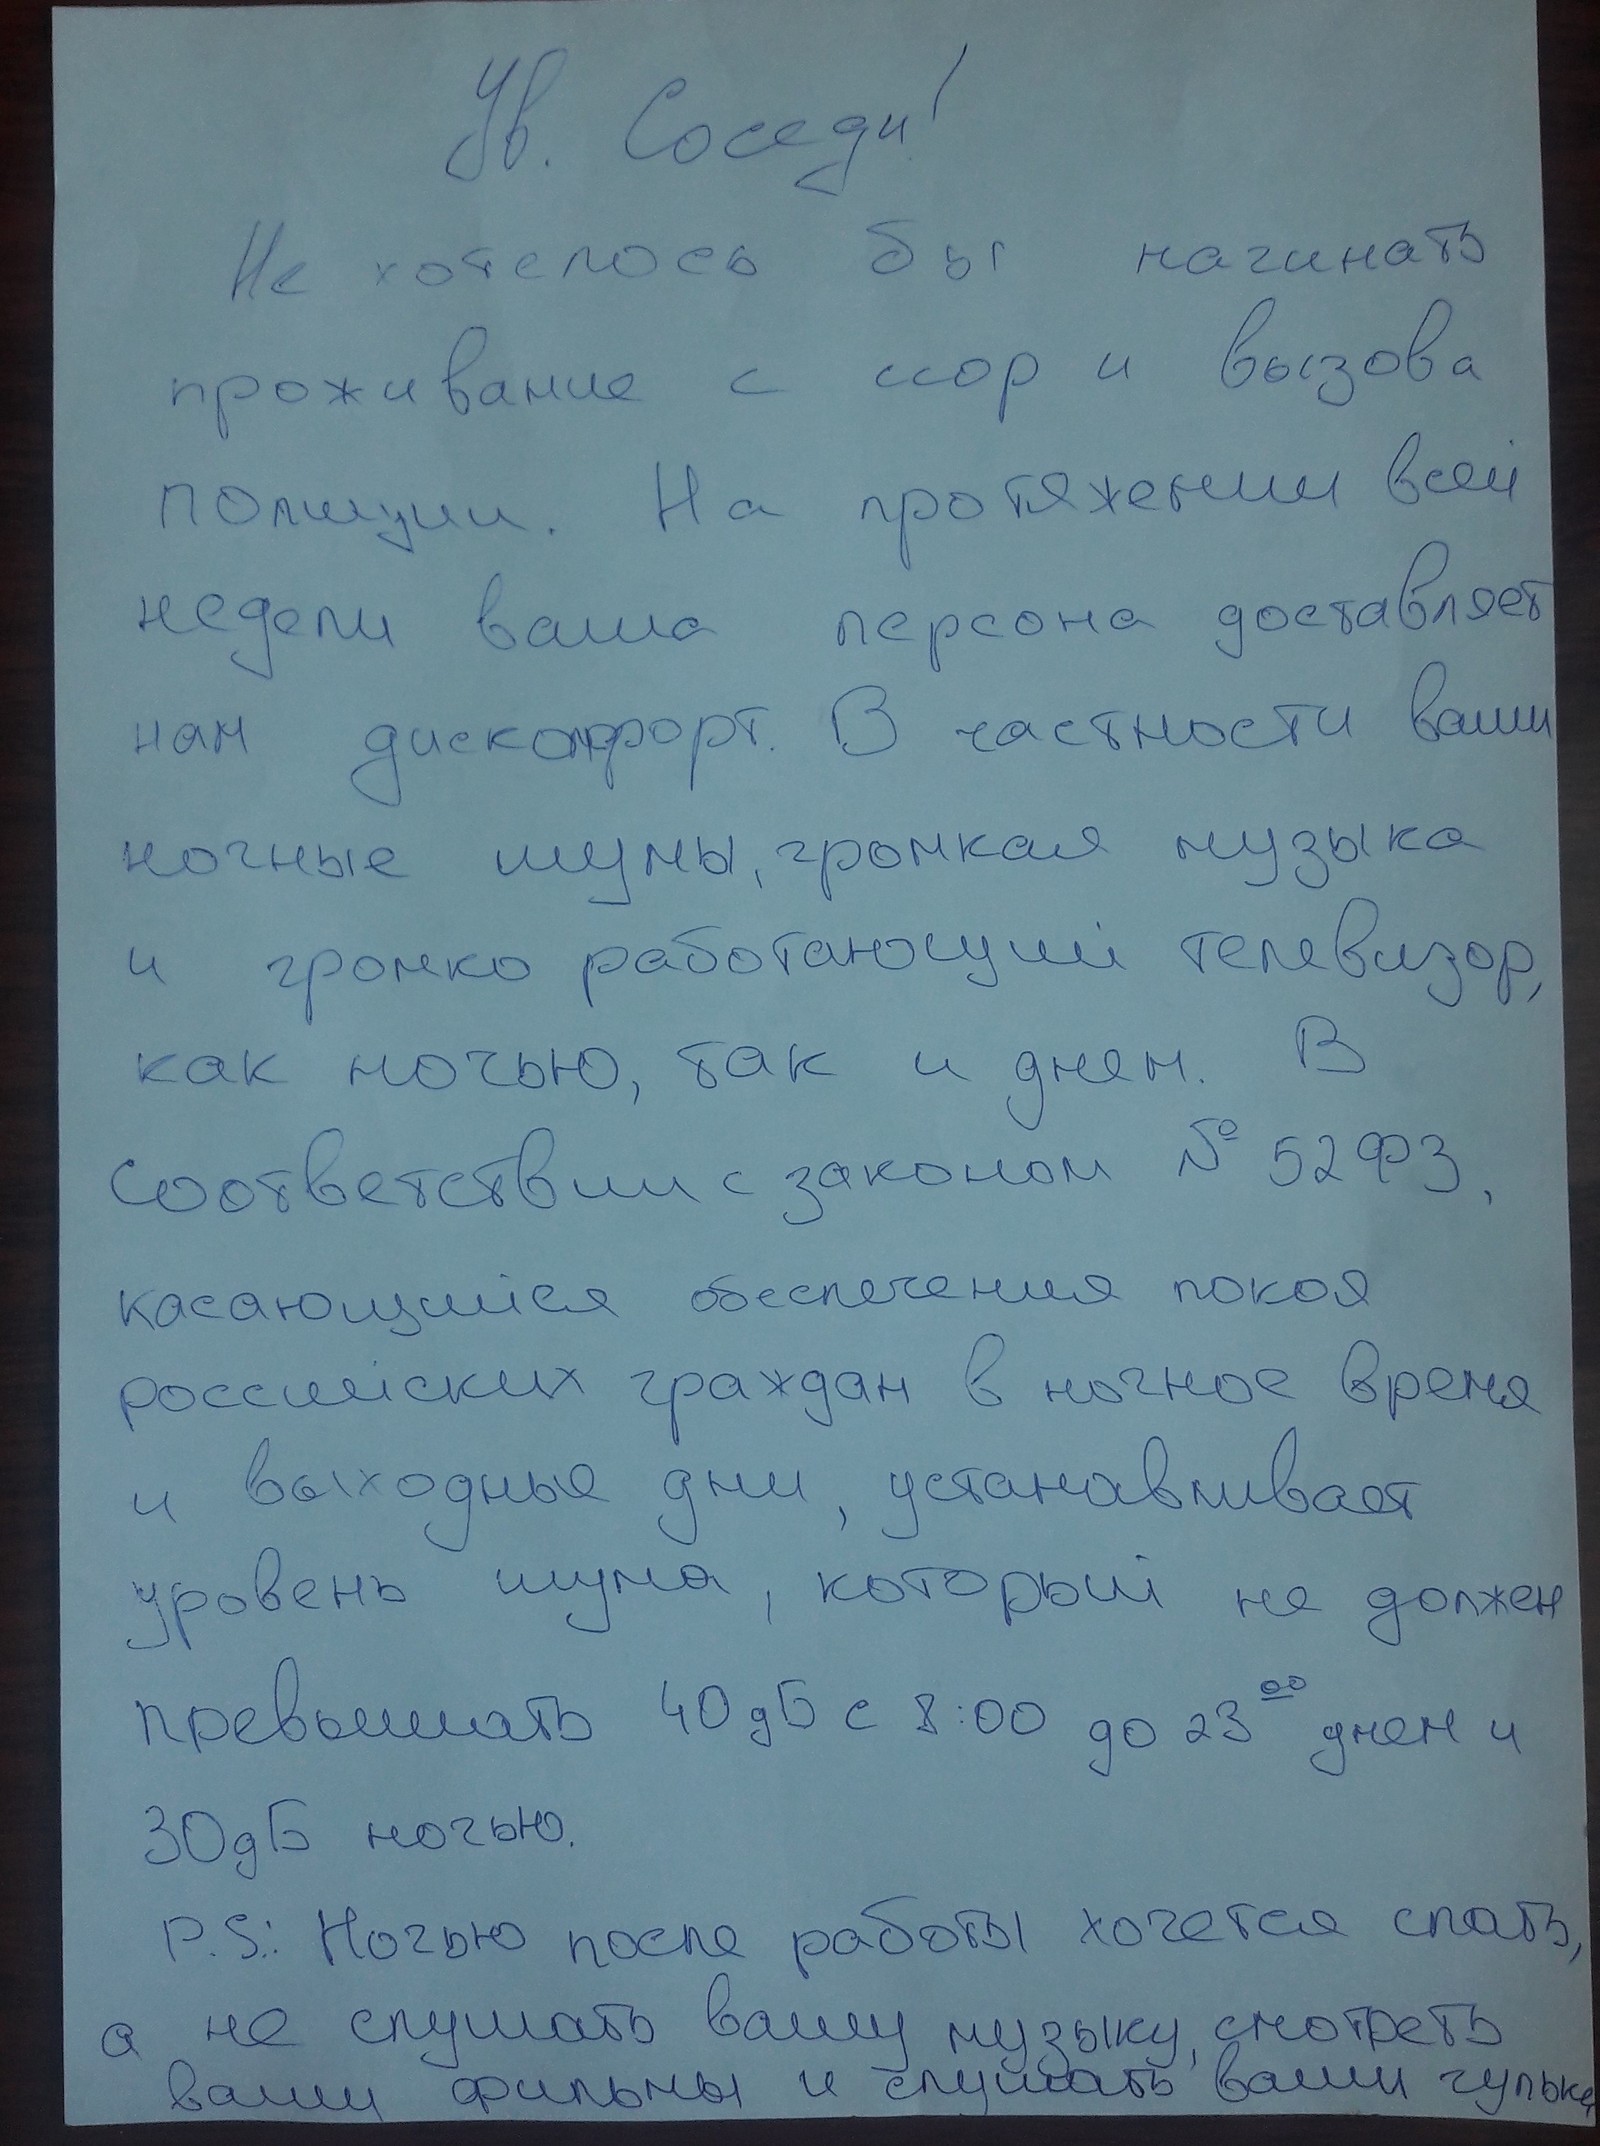 Ув. Соседи!
Не хотелось бы начинать
проживание с ссор и вызова
полиции. На протяжении всей
недели ваша персона доставляет
нам дискомфорт. В частности ваши
ночные шумы, громкая музыка
и громко работающий телевизор,
как ночью, так и днем. В
соответствии с законом № 52 ФЗ,
касающийся обеспечения покоя
российских граждан в ночное время
и выходные дни, устанавливает
уровень шума, который не должен
превышать 40 дБ с 8:00 до 23⁰⁰ днем и
30 дБ ночью.
P.S.: Ночью после работы хочется спать,
а не слушать вашу музыку, смотреть
ваши фильмы и слушать ваши гульки